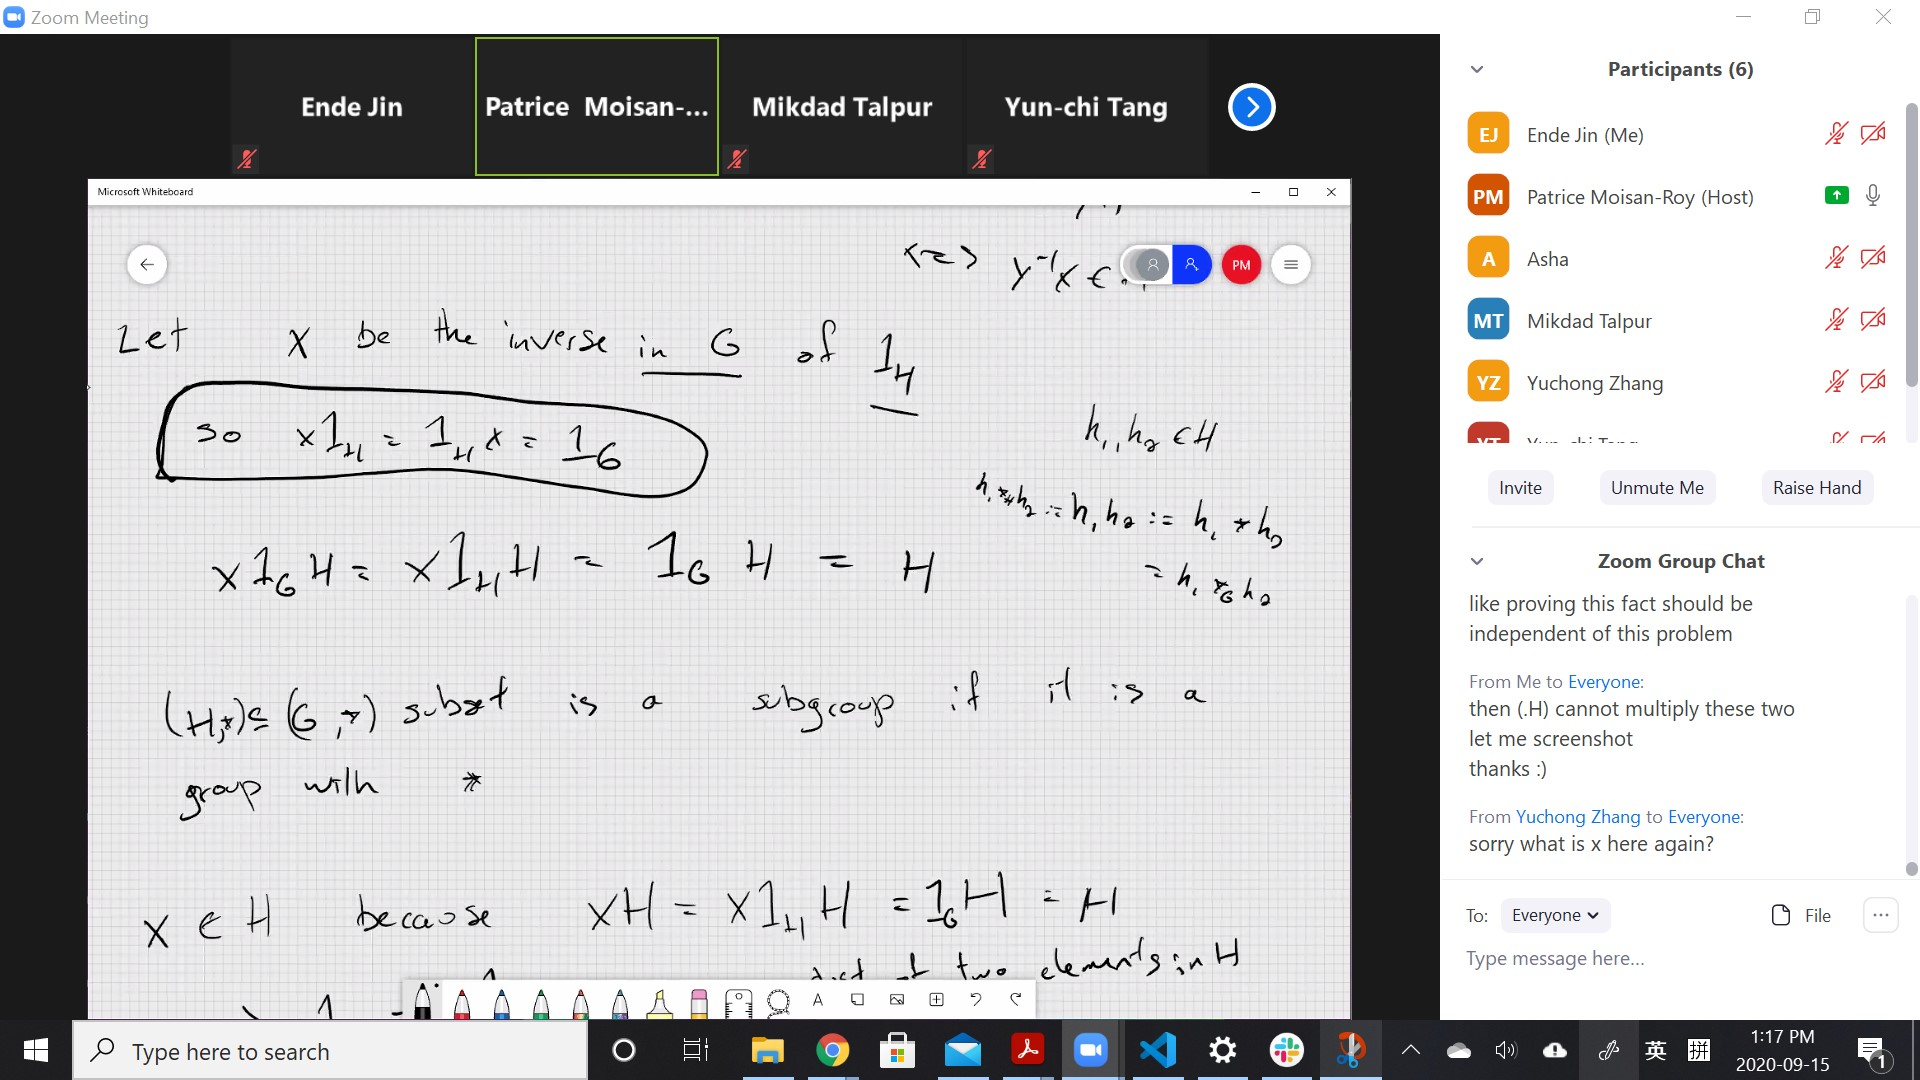 Zoom Meeting
Ende Jin
Patrice Moisan-...
Mikdad Talpur
Yun-chi Tang
Microsoft Whiteboard
PM
<=> y⁻¹x ∈
Let x be the inverse in G of 1_H
so x1_H = 1_H x = 1_G
h₁, h₂ ∈ H
h₁ *_H h₂ := h₁h₂ := h₁ * h₂
= h₁ *_G h₂
x1_G H = x1_H H = 1_G H = H
(H,*) ⊆ (G,*) subset is a subgroup if it is a
group with *
x ∈ H because xH = x1_H H = 1_G H = H
of two elements in H
Participants (6)
EJ Ende Jin (Me)
PM Patrice Moisan-Roy (Host)
A Asha
MT Mikdad Talpur
YZ Yuchong Zhang
YT Yun-chi Tang
Invite
Unmute Me
Raise Hand
Zoom Group Chat
like proving this fact should be
independent of this problem
From Me to Everyone:
then (.H) cannot multiply these two
let me screenshot
thanks :)
From Yuchong Zhang to Everyone:
sorry what is x here again?
To: Everyone
File
Type message here...
Type here to search
英
拼
1:17 PM
2020-09-15
1